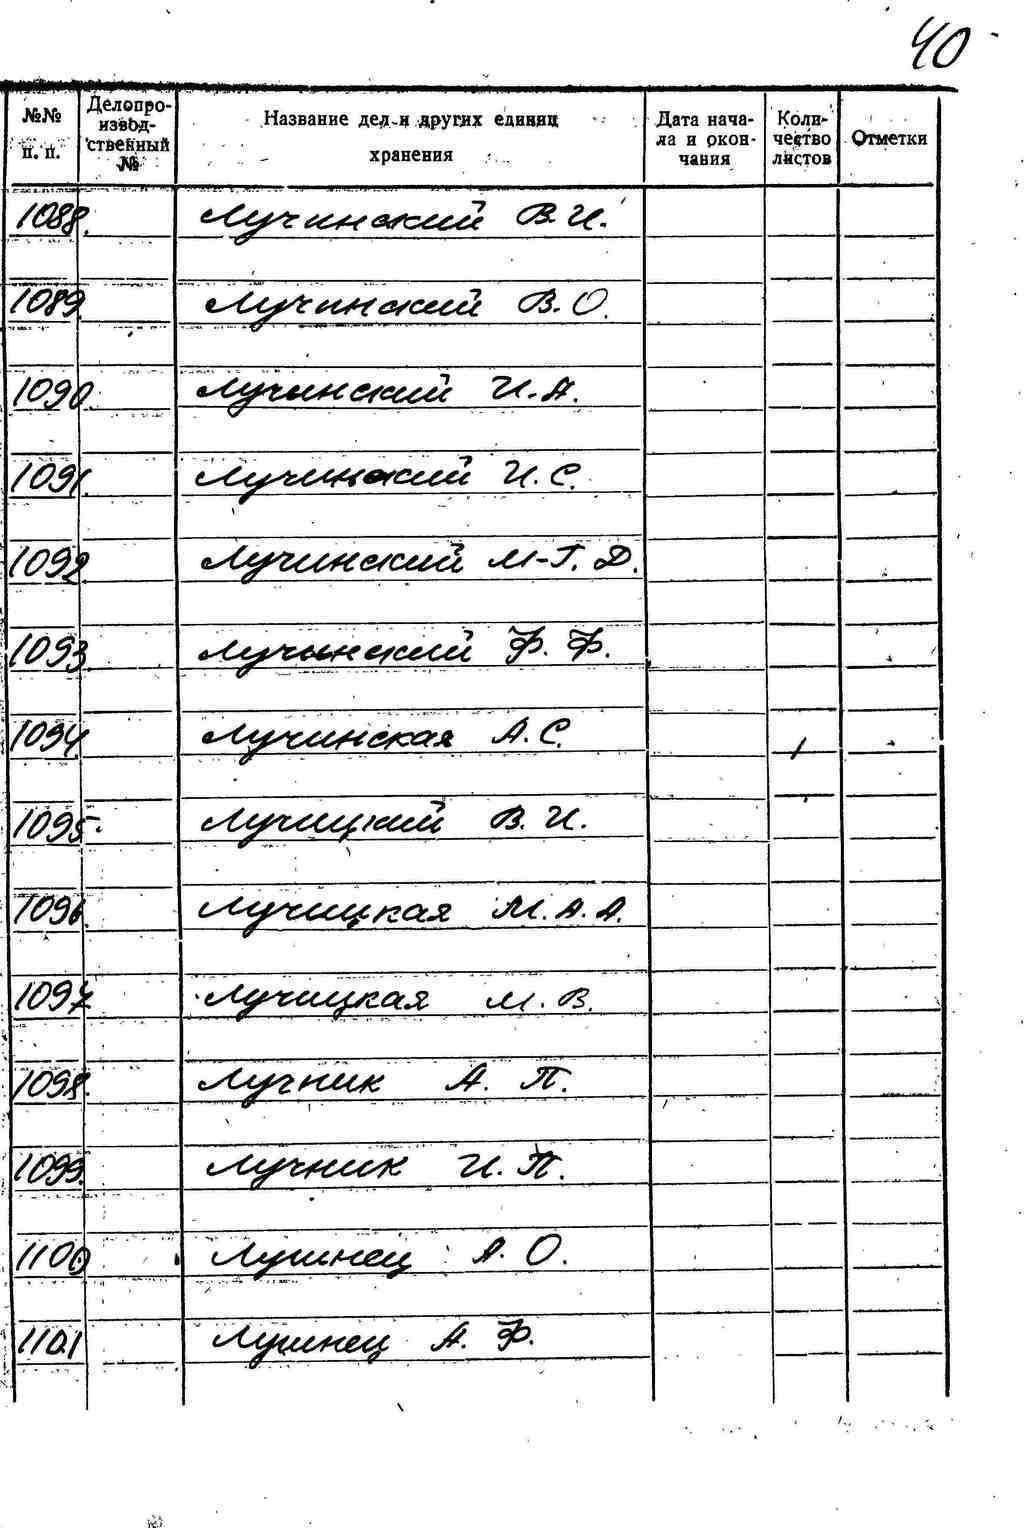 40
№№ п. п. Делопроизводственный № Название дел и других единиц хранения Дата начала и окончания Количество листов Отметки
1088. Лучинский В. И.
1089. Лучинский В. О.
1090. Лучинский И. А.
1091. Лучинский И. С.
1092. Лучинский М-Г. Д.
1093. Лучинский Ф. Ф.
1094. Лучинская А. С.
1095. Лучицкий В. И.
1096. Лучицкая М. А. А.
1097. Лучицкая М. В.
1098. Лучник А. П.
1099. Лучник И. П.
1100. Лушнец А. О.
1101 Лушнец А. Ф.